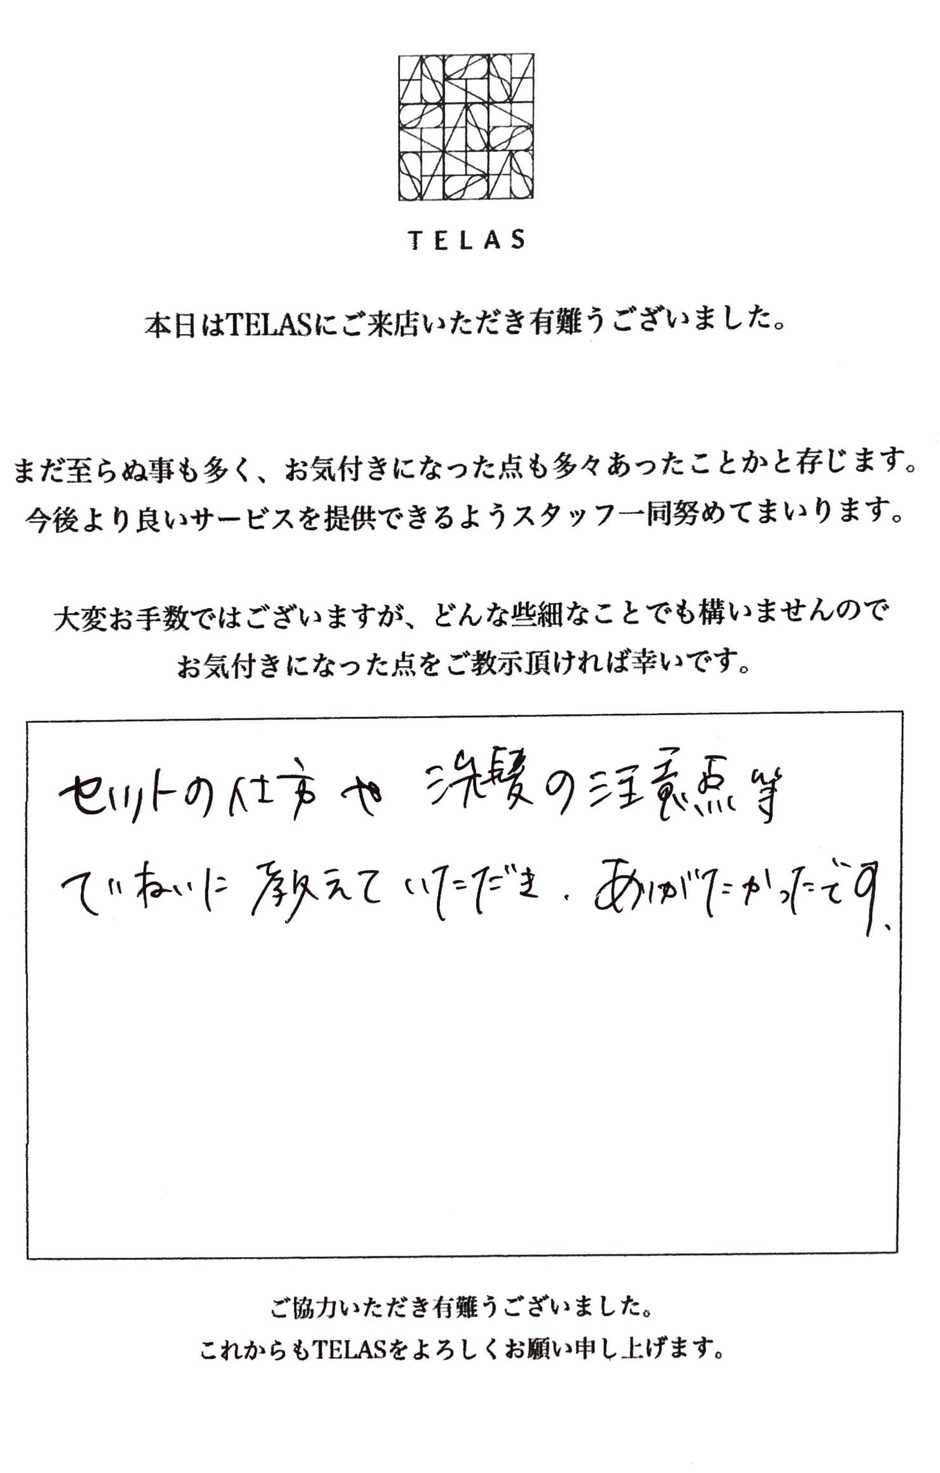 TELAS
本日はTELASにご来店いただき有難うございました。
まだ至らぬ事も多く、お気付きになった点も多々あったことかと存じます。
今後より良いサービスを提供できるようスタッフ一同努めてまいります。
大変お手数ではございますが、どんな些細なことでも構いませんので
お気付きになった点をご教示頂ければ幸いです。
セットの仕方や 洗髪の注意点等
ていねいに教えていただき、ありがたかったです、
ご協力いただき有難うございました。
これからもTELASをよろしくお願い申し上げます。